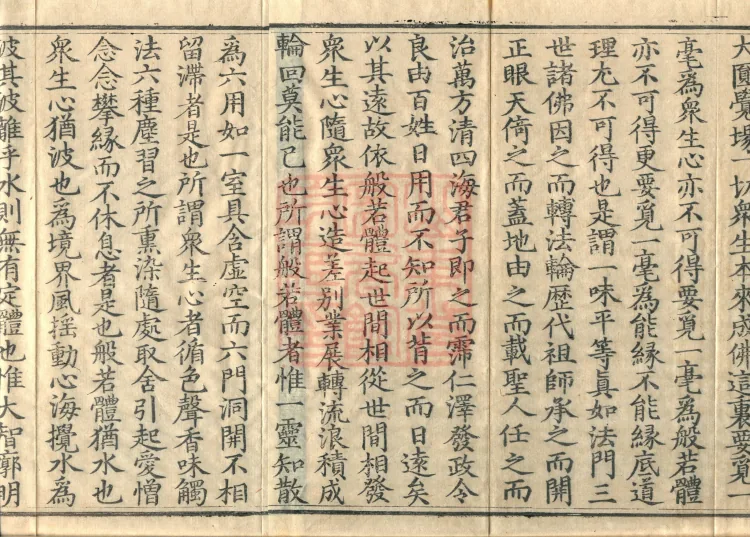 大圓覺場一切衆生本來成佛這裏要覓一
毫爲衆生心亦不可得要覓一毫爲般若體
亦不可得更要覓一毫爲能緣不能緣底道
理尤不可得也是謂一味平等眞如法門三
世諸佛因之而轉法輪歷代祖師承之而開
正眼天倚之而蓋地由之而載聖人任之而
治萬方清四海君子即之而霈仁澤發政令
良由百姓日用而不知所以背之而日遠矣
以其遠故依般若體起世間相從世間相發
衆生心隨衆生心造差别業展轉流浪積成
輪回莫能已也所謂般若體者惟一靈知散
爲六用如一室具含虛空而六門洞開不相
留滯者是也所謂衆生心者循色聲香味觸
法六種塵習之所熏染隨處取舍引起愛憎
念念攀緣而不休息者是也般若體猶水也
衆生心猶波也爲境界風揺動心海攪水爲
波其波離乎水則無有定體也惟大智廓明